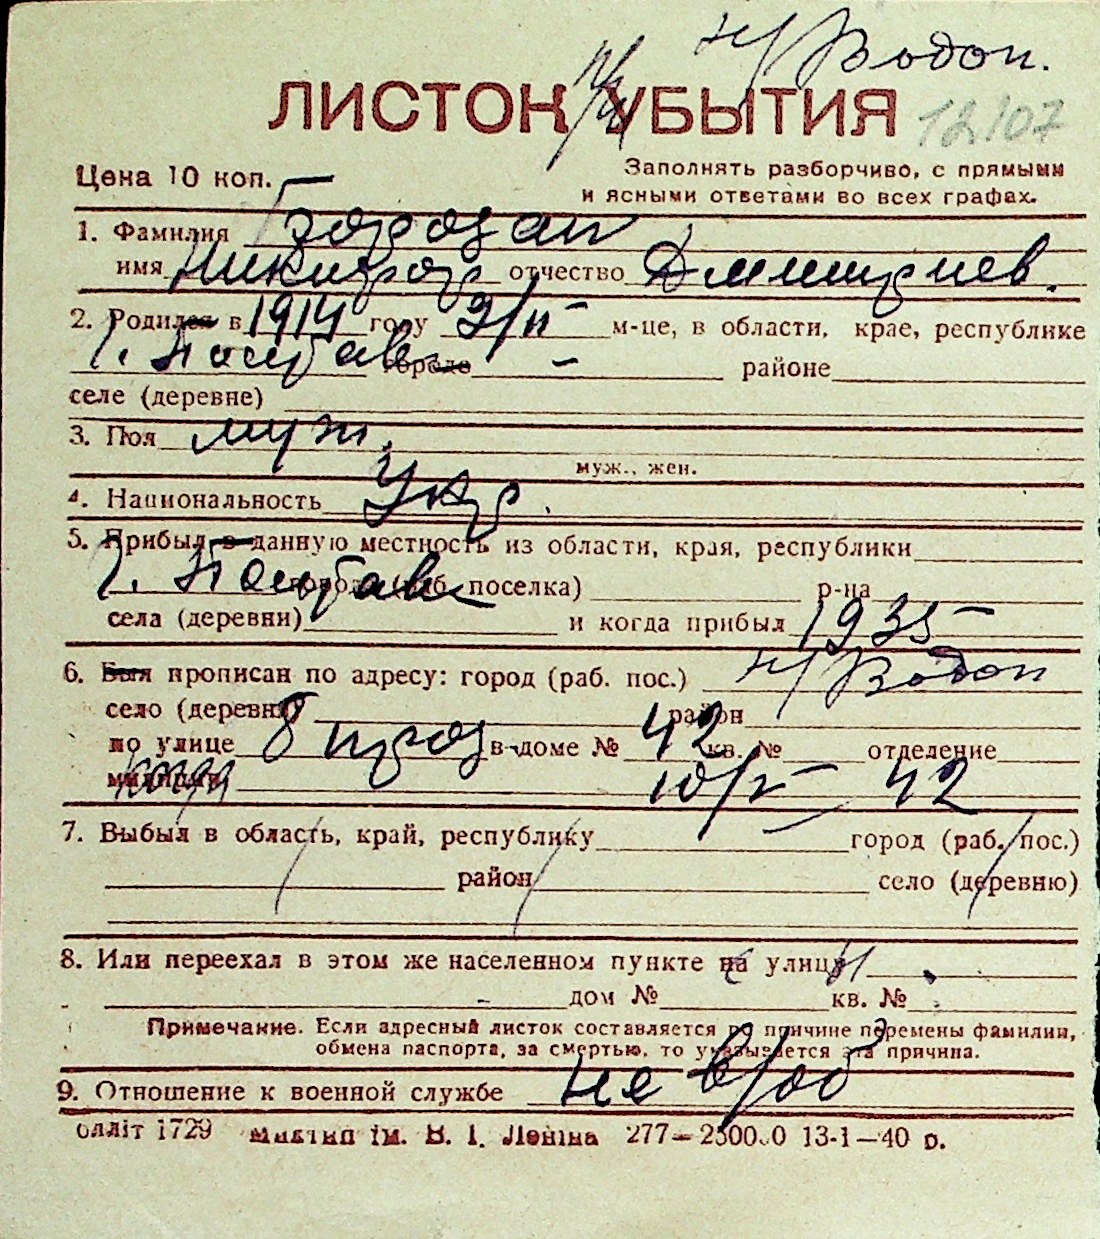 н/Водоп.
ЛИСТОК УБЫТИЯ 12/07
Цена 10 коп.
Заполнять разборчиво, с прямыми
и ясными ответами во всех графах.
1. Фамилия
имя Никифор отчество Дмитриев.
2. Родился в 1914 году 9/II м-це, в области, крае, республике
г. Полтава городе – районе
селе (деревне)
3. Пол муж.
муж., жен.
4. Национальность Укр.
5. Прибыл в данную местность из области, края, республики
г. Полтава города (раб. поселка) р-на
села (деревни) и когда прибыл 1935
6. Был прописан по адресу: город (раб. пос.) н/Водоп
село (деревня) район
по улице 8 прод в доме № 42 кв. № отделение
милиции 10/V – 42
7. Выбыл в область, край, республику город (раб. пос.)
район село (деревню)
8. Или переехал в этом же населенном пункте на улицу
дом № кв. №
Примечание. Если адресный листок составляется по причине перемены фамилии,
обмена паспорта, за смертью, то указывается эта причина.
9. Отношение к военной службе не в/об
блліт 1729 ім. В. І. Леніна 277–25000 13-1–40 р.